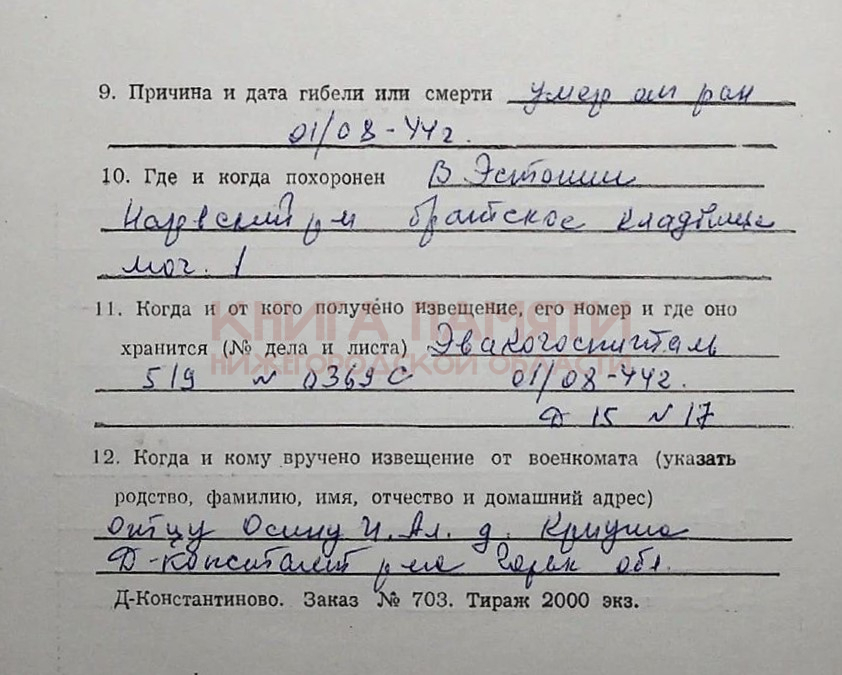 9. Причина и дата гибели или смерти умер от ран
01/08-44г.
10. Где и когда похоронен В Эстонии
Нарвский р-н братское кладбище
мог. 1
11. Когда и от кого получено извещение, его номер и где оно
КНИГА ПАМЯТИ
хранится (№ дела и листа) Эвакогоспиталь
НИЖЕГОРОДСКОЙ ОБЛАСТИ
519 N 0369С 01/08-44г.
Д 15 N 17
12. Когда и кому вручено извещение от военкомата (указать
родство, фамилию, имя, отчество и домашний адрес)
Отцу Осину И. Ал. д. Криуша
Д-Константин р-на Горьк обл.
Д-Константиново. Заказ № 703. Тираж 2000 экз.